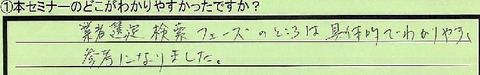 ①本セミナーのどこがわかりやすかったですか？
業者選定 検索フェーズのところは具体的でわかりやすく
参考になりました。